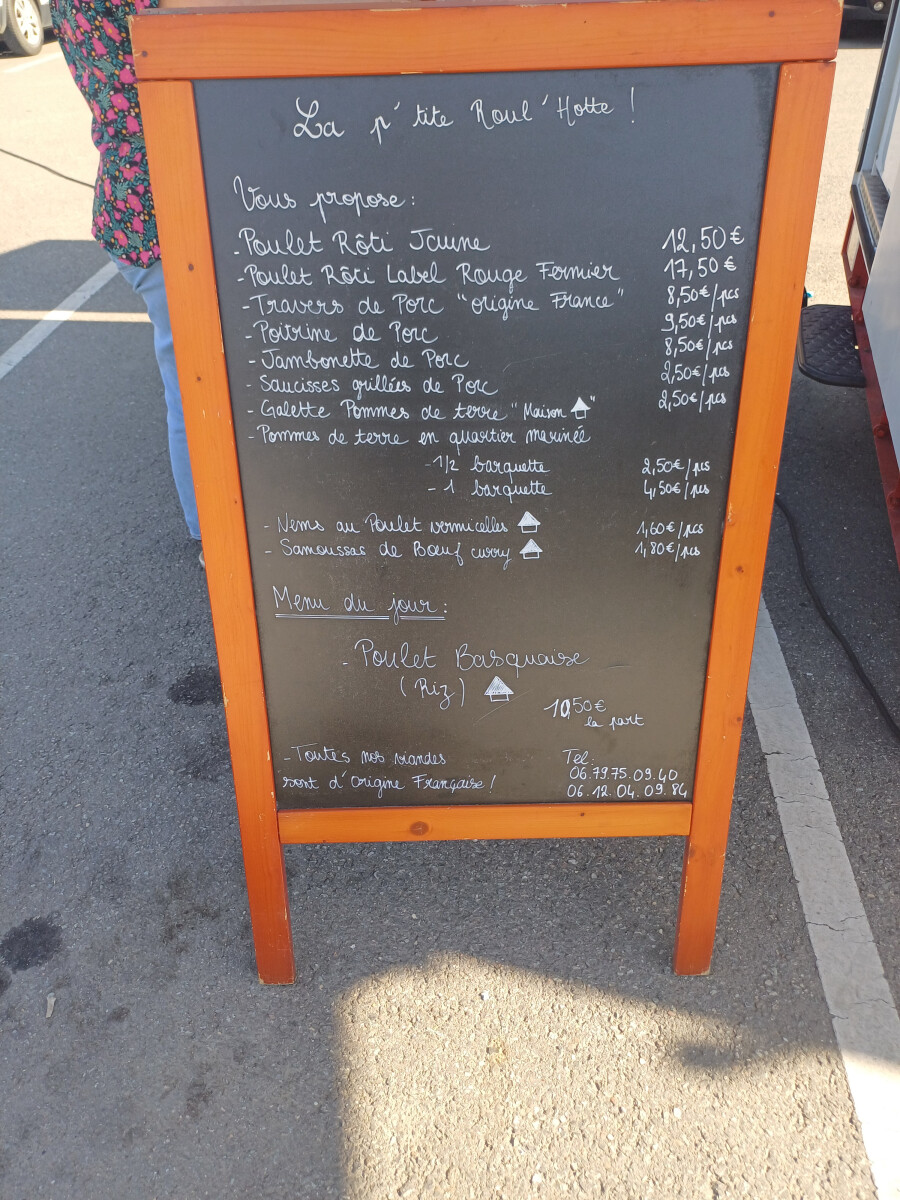 La p'tite Roul'Hotte !
Vous propose :
- Poulet Rôti Jaune 12,50€
- Poulet Rôti Label Rouge Fermier 17,50€
- Travers de Porc "origine France" 8,50€/pcs
- Poitrine de Porc 9,50€/pcs
- Jambonette de Porc 8,50€/pcs
- Saucisses grillées de Porc 2,50€/pcs
- Galette Pommes de terre "Maison" 2,50€/pcs
- Pommes de terre en quartier marinée
- 1/2 barquette 2,50€/pcs
- 1 barquette 4,50€/pcs
- Nems au Poulet vermicelles 1,60€/pcs
- Samoussas de Bœuf curry 1,80€/pcs
Menu du jour :
- Poulet Basquaise
(Riz)
10,50€
la part
- Toutes nos viandes
sont d'Origine Française !
Tel :
06.79.75.09.40
06.12.04.09.84